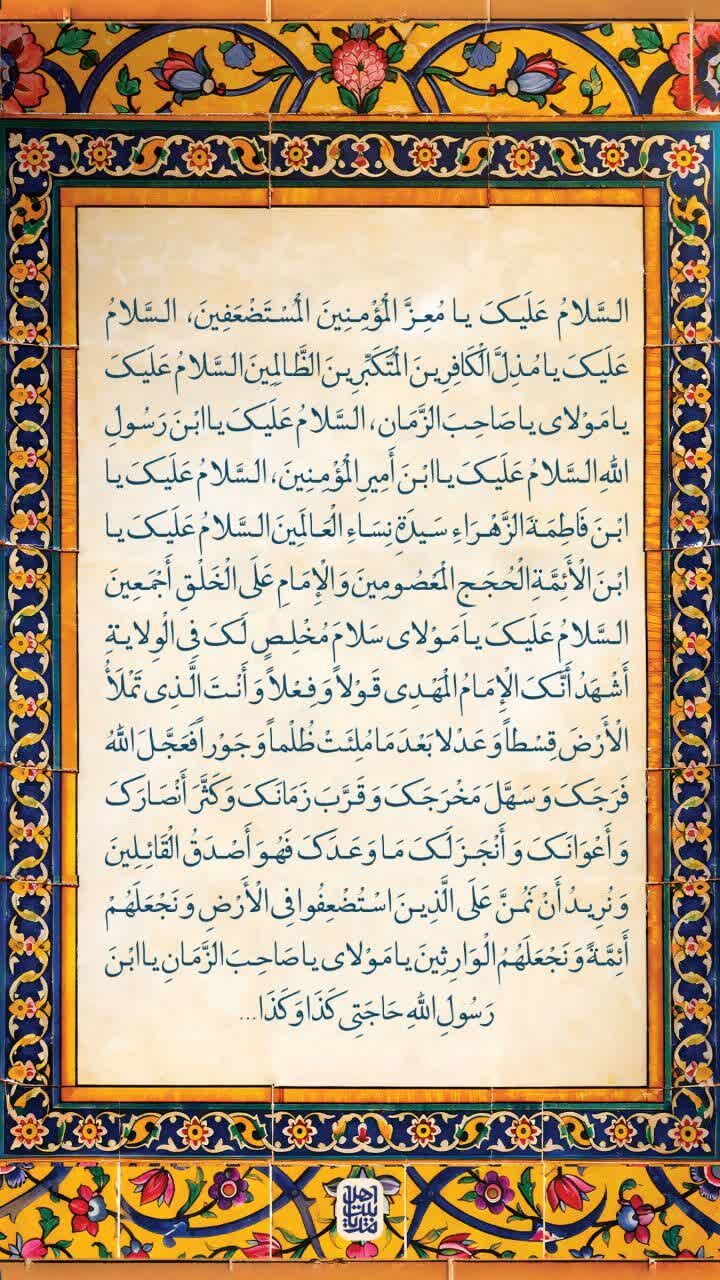 السَّلامُ عَلَیکَ یا مُعِزَّ الْمُؤْمِنِینَ الْمُسْتَضْعَفِینَ، السَّلامُ
عَلَیکَ یا مُذِلَّ الْکَافِرِینَ الْمُتَکَبِّرِینَ الظَّالِمِینَ السَّلامُ عَلَیکَ
یا مَوْلای یا صَاحِبَ الزَّمَانِ، السَّلامُ عَلَیکَ یا ابْنَ رَسُولِ
اللهِ السَّلامُ عَلَیکَ یا ابْنَ أَمِیرِ الْمُؤْمِنِینَ، السَّلامُ عَلَیکَ یا
ابْنَ فَاطِمَةَ الزَّهْرَاءِ سَیدَةِ نِسَاءِ الْعَالَمِینَ السَّلامُ عَلَیکَ یا
ابْنَ الْأَئِمَّةِ الْحُجَجِ الْمَعْصُومِینَ وَ الْإِمَامِ عَلَى الْخَلْقِ أَجْمَعِینَ
السَّلامُ عَلَیکَ یا مَوْلای سَلامَ مُخْلِصٍ لَکَ فِی الْوِلایةِ
أَشْهَدُ أَنَّکَ الْإِمَامُ الْمَهْدِی قَوْلاً وَ فِعْلاً وَ أَنْتَ الَّذِی تَمْلَأُ
الْأَرْضَ قِسْطاً وَ عَدْلا بَعْدَ مَا مُلِئَتْ ظُلْماً وَ جَوْراً فَعَجَّلَ اللهُ
فَرَجَکَ وَ سَهَّلَ مَخْرَجَکَ وَ قَرَّبَ زَمَانَکَ وَ کَثَّرَ أَنْصَارَکَ
وَ أَعْوَانَکَ وَ أَنْجَزَ لَکَ مَا وَعَدَکَ فَهُوَ أَصْدَقُ الْقَائِلِینَ
وَ نُرِیدُ أَنْ نَمُنَّ عَلَى الَّذِینَ اسْتُضْعِفُوا فِی الْأَرْضِ وَ نَجْعَلَهُمْ
أَئِمَّةً وَ نَجْعَلَهُمُ الْوَارِثِینَ یا مَوْلای یا صَاحِبَ الزَّمَانِ یا ابْنَ
رَسُولِ اللهِ حَاجَتِی کَذَا وَ کَذَا...